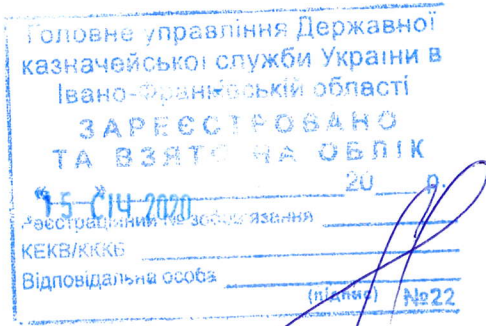 Головне управління Державної
казначейської служби України в
Івано-Франківській області
ЗАРЕЄСТРОВАНО
ТА ВЗЯТО НА ОБЛІК
20 р.
15 СІЧ 2020
Реєстраційний № зобов'язання
КЕКВ/ККК
Відповідальна особа
(підпис) №22